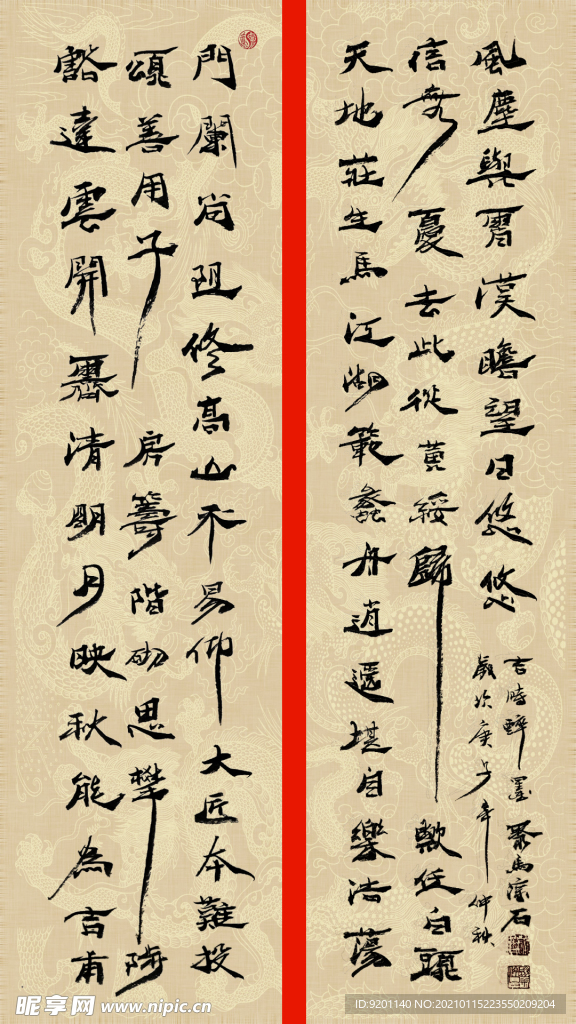 豁達雲開霽清明月映秋能為吉甫
頌善用子房籌階砌思攀陟
門闌尚阻修高山不易仰大匠本難投
天地莊生馬江湖範蠡舟逍遙堪自樂浩蕩
信無憂去此從黃綬歸歟任白頭
風塵與霄漢瞻望日悠悠
歲次庚子年仲秋
吉時醉墨
昵享网 www.nipic.cn
ID:9201140 NO:20210115223550209204